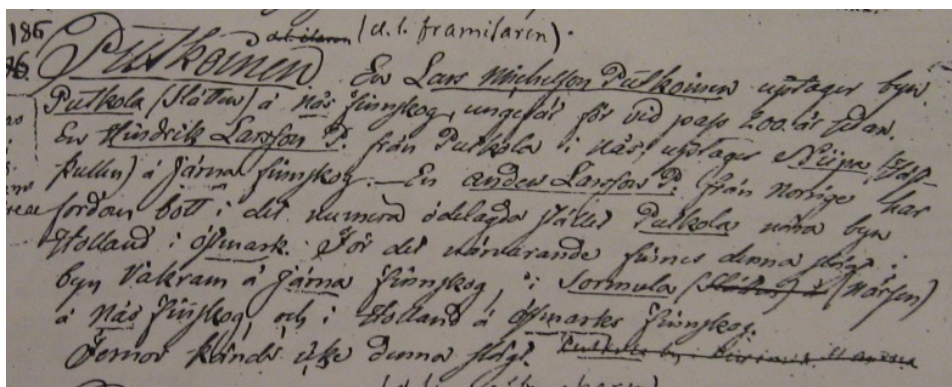 186
(d. l. framifarin)
Putkoinen En Lars Michelsson Putkoinen uptager byn
Putkola (Slätten) å Näs finnskog, ungefär för vid pass 200 år sedan.
En Hindrik Larsson P. från Putkola i Näs, uptager
å Järna finnskog. — En Anders Larsson P. från Norrige har
fordom bott i det numera ödelagda stället Putkola nära byn
Holland i Östmark. För det närvarande finnes denna slägt i
byn Vakram å Järna finnskog, i Sormula (Närsen)
å Näs finnskog, och i Holland å Östmarks finnskog.
Fernow kände icke denna slägt.